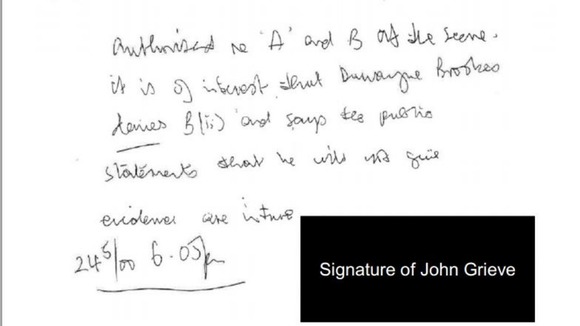 Authorised re 'A' and B at the scene.
it is of interest that Duwayne Brookes
denies B(ii) and says the public
statements that he will not give
evidence are untrue
24/5/00 6.05pm
Signature of John Grieve